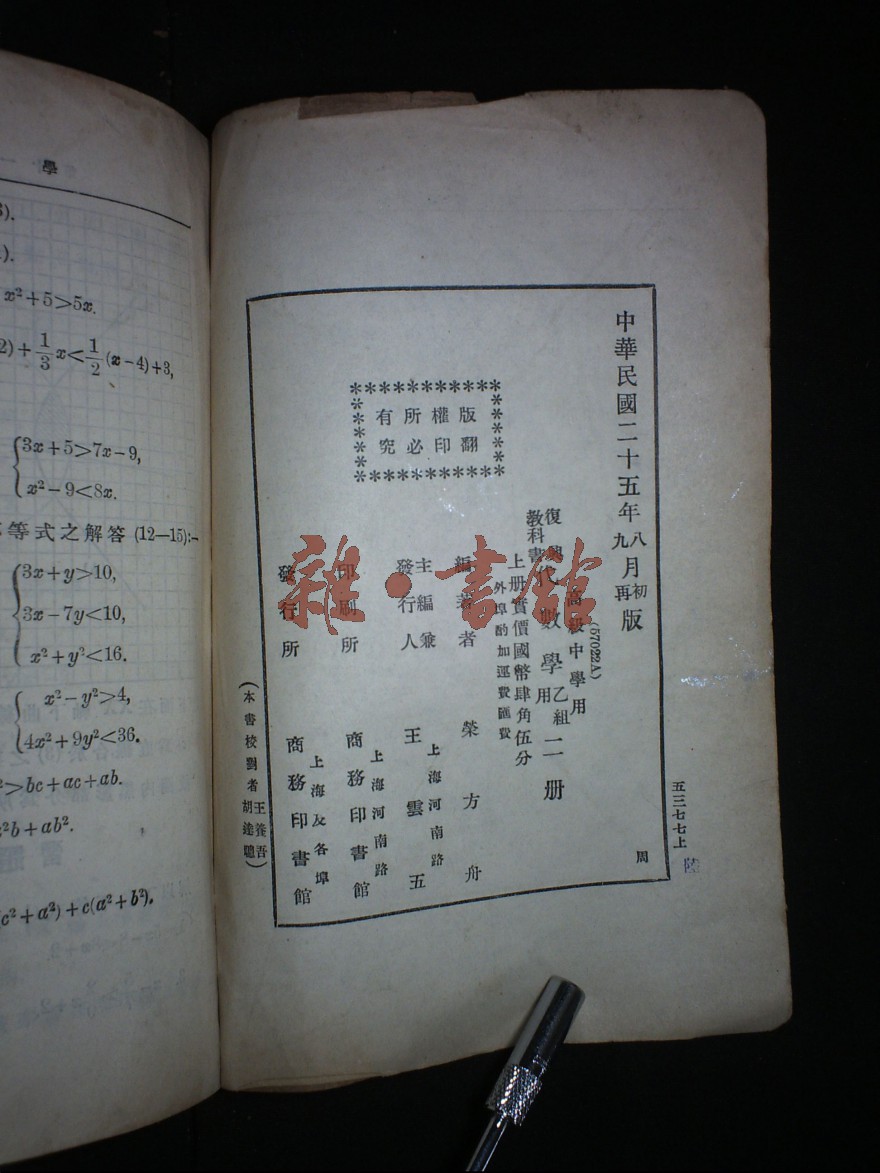 學
x²+5>5x.
2)+1/3 x<1/2 (x-4)+3,
3x+5>7x-9,
x²-9<8x.
等式之解答 (12—15):-
3x+y>10,
3x-7y<10,
x²+y²<16.
x²-y²>4,
4x²+9y²<36.
²>bc+ac+ab.
²b+ab².
(c²+a²)+c(a²+b²).
中華民國二十五年八月初版
九月再版
(57022A)
高級中學用
復興教科書 代數學 乙組用 二册
上册實價國幣肆角伍分
外埠酌加運費匯費
版權所有
翻印必究
編著者 榮方舟
主編兼發行人 王雲五
上海河南路
印刷所 商務印書館
上海河南路
發行所 商務印書館
上海及各埠
(本書校對者 王養吾 胡達聰)
周
五三七七上
陸
雜·書館